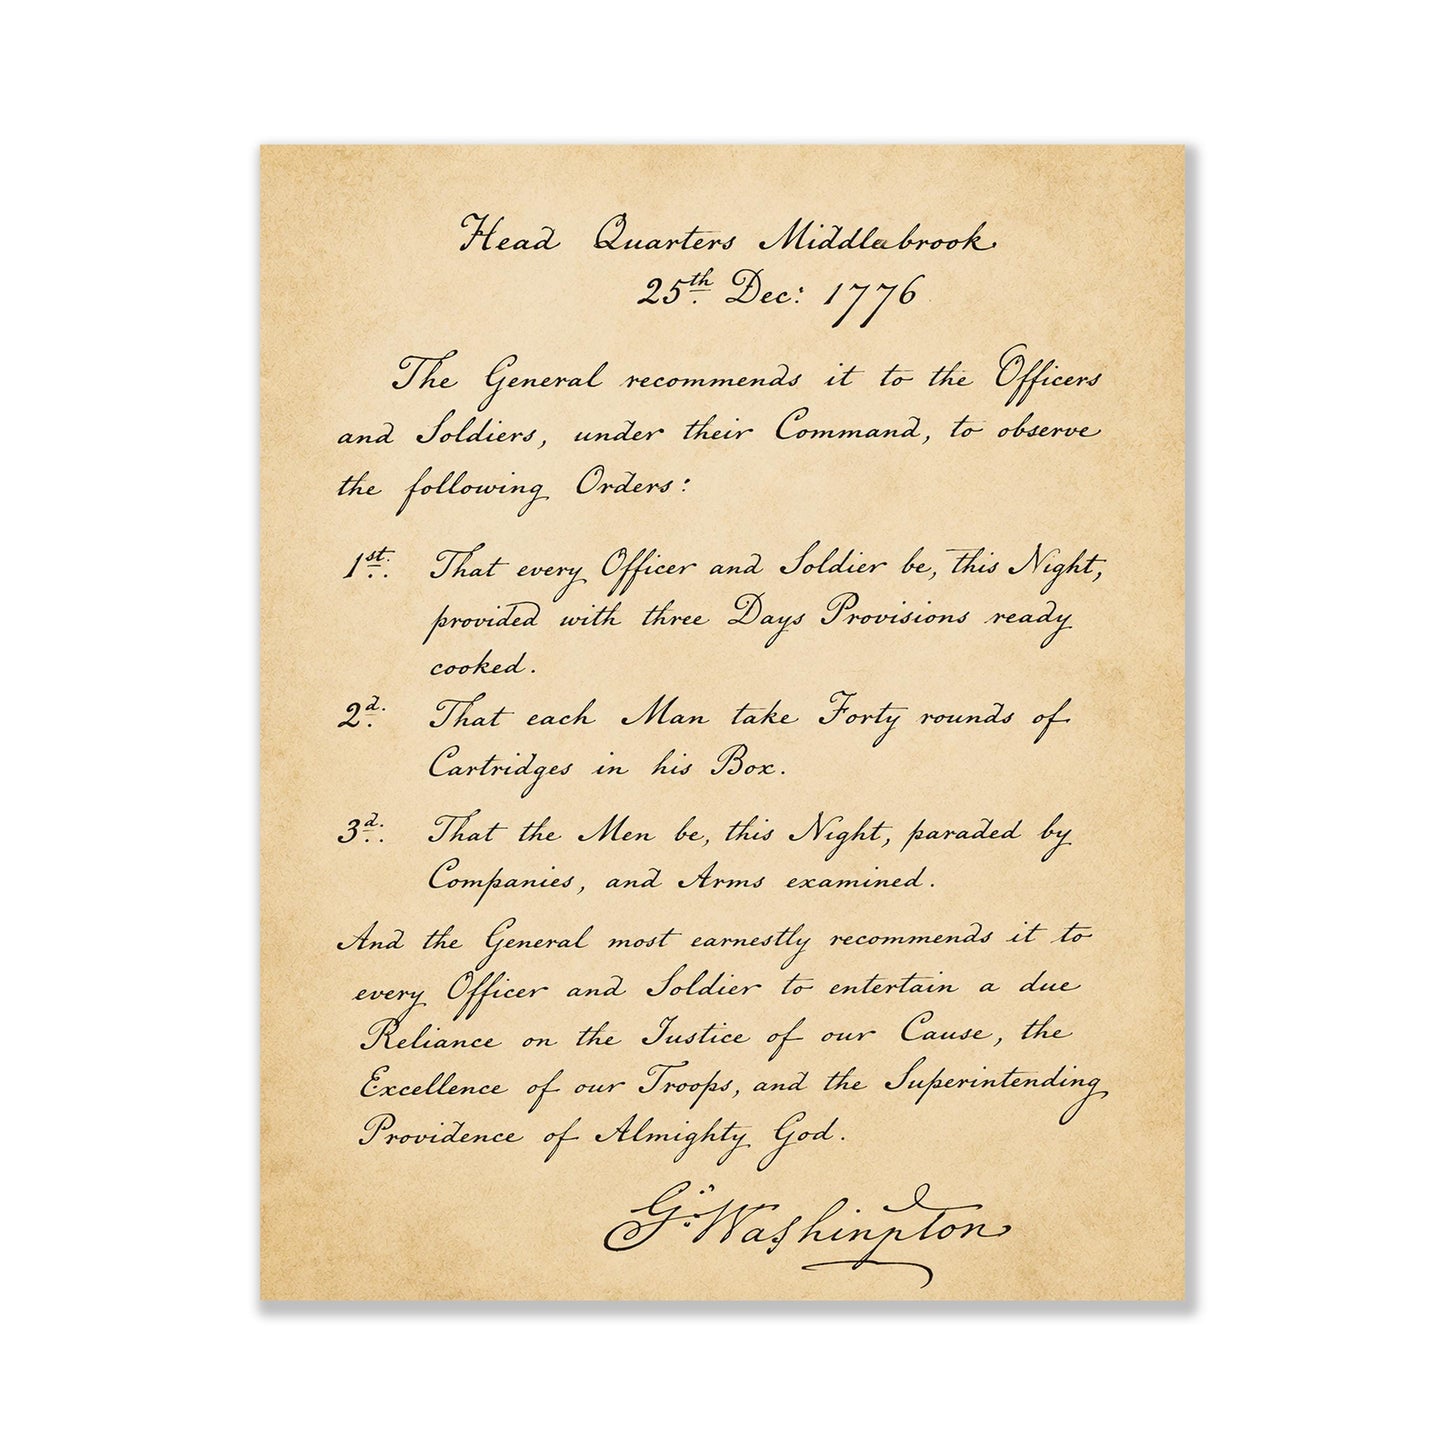 Head Quarters Middlebrook
25th Dec: 1776
The General recommends it to the Officers
and Soldiers, under their Command, to observe
the following Orders:
1st. That every Officer and Soldier be, this Night,
provided with three Days Provisions ready
cooked.
2d. That each Man take Forty rounds of
Cartridges in his Box.
3d. That the Men be, this Night, paraded by
Companies, and Arms examined.
And the General most earnestly recommends it to
every Officer and Soldier to entertain a due
Reliance on the Justice of our Cause, the
Excellence of our Troops, and the Superintending
Providence of Almighty God.
Go: Washington